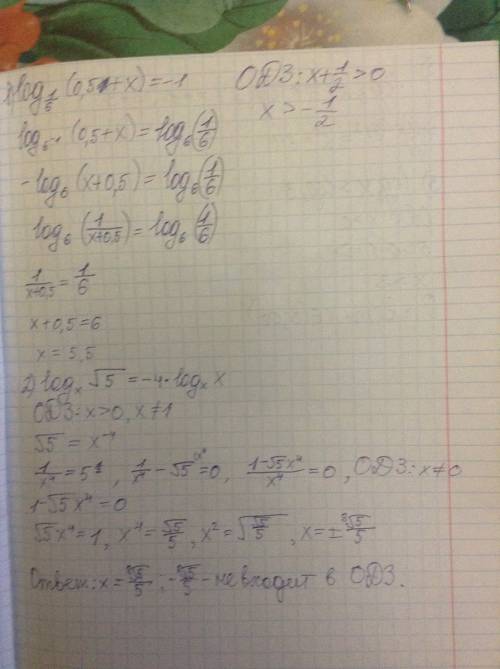 1) log_{1/6} (0,5+x) = -1    ОДЗ: x+1/2 > 0
x > -1/2
log_{6^{-1}} (0,5+x) = log_6 (1/6)
-log_6 (x+0,5) = log_6 (1/6)
log_6 (1/(x+0,5)) = log_6 (1/6)
1/(x+0,5) = 1/6
x+0,5=6
x = 5,5
2) log_x √5 = -4·log_x x
ОДЗ: x>0, x≠1
√5 = x^{-4}
1/x^4 = , 1/x^4 - √5 = 0, (1-√5x^4)/x^4 = 0, ОДЗ: x≠0
1-√5x^4 = 0
√5x^4 = 1, x^4 = √5/5, x^2 = , x = ±
Ответ: x = ; - не входит в ОДЗ.